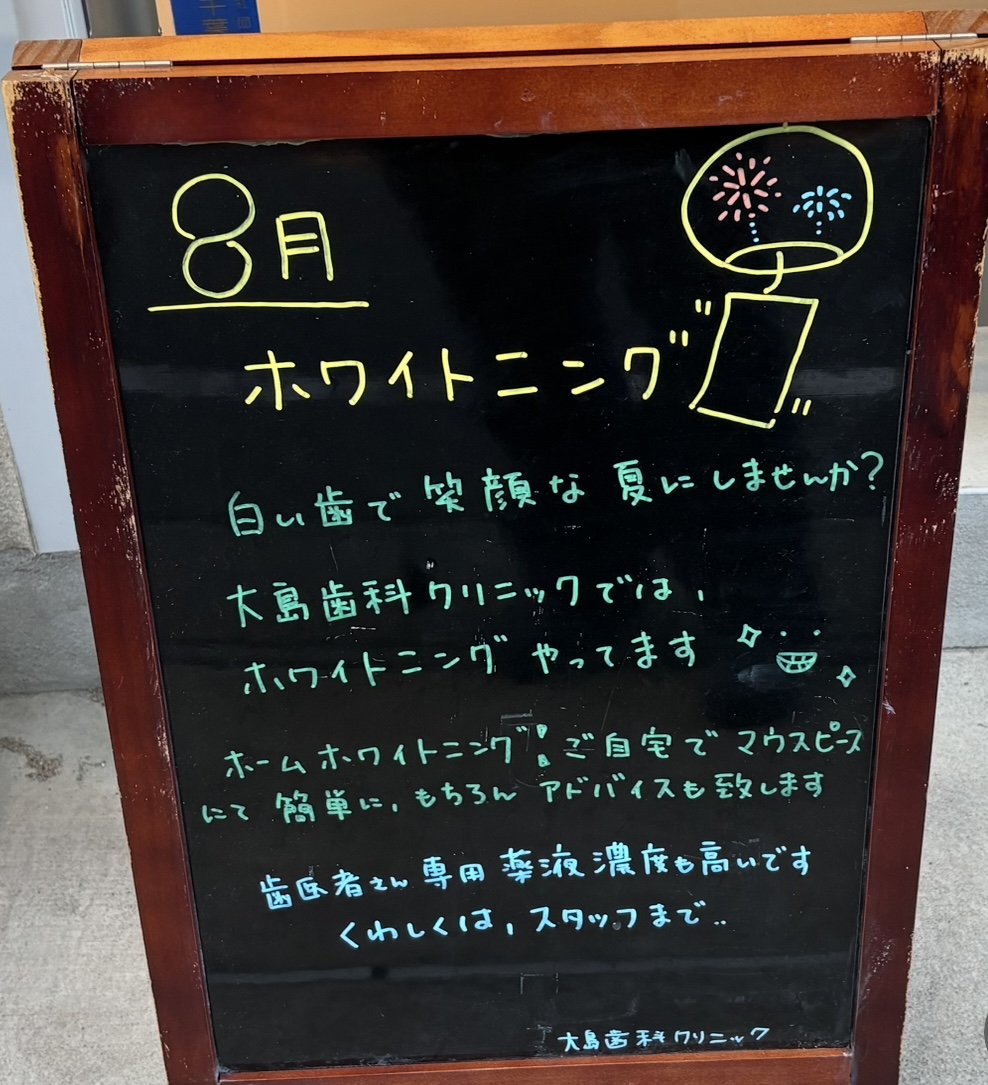 8月
ホワイトニング
白い歯で 笑顔な 夏にしませんか?
大島歯科クリニックでは,
ホワイトニング やってます
ホームホワイトニング! ご自宅で マウスピース
にて 簡単に, もちろん アドバイスも致します
歯医者さん 専用 薬液濃度も高いです
くわしくは, スタッフまで..
大島歯科クリニック